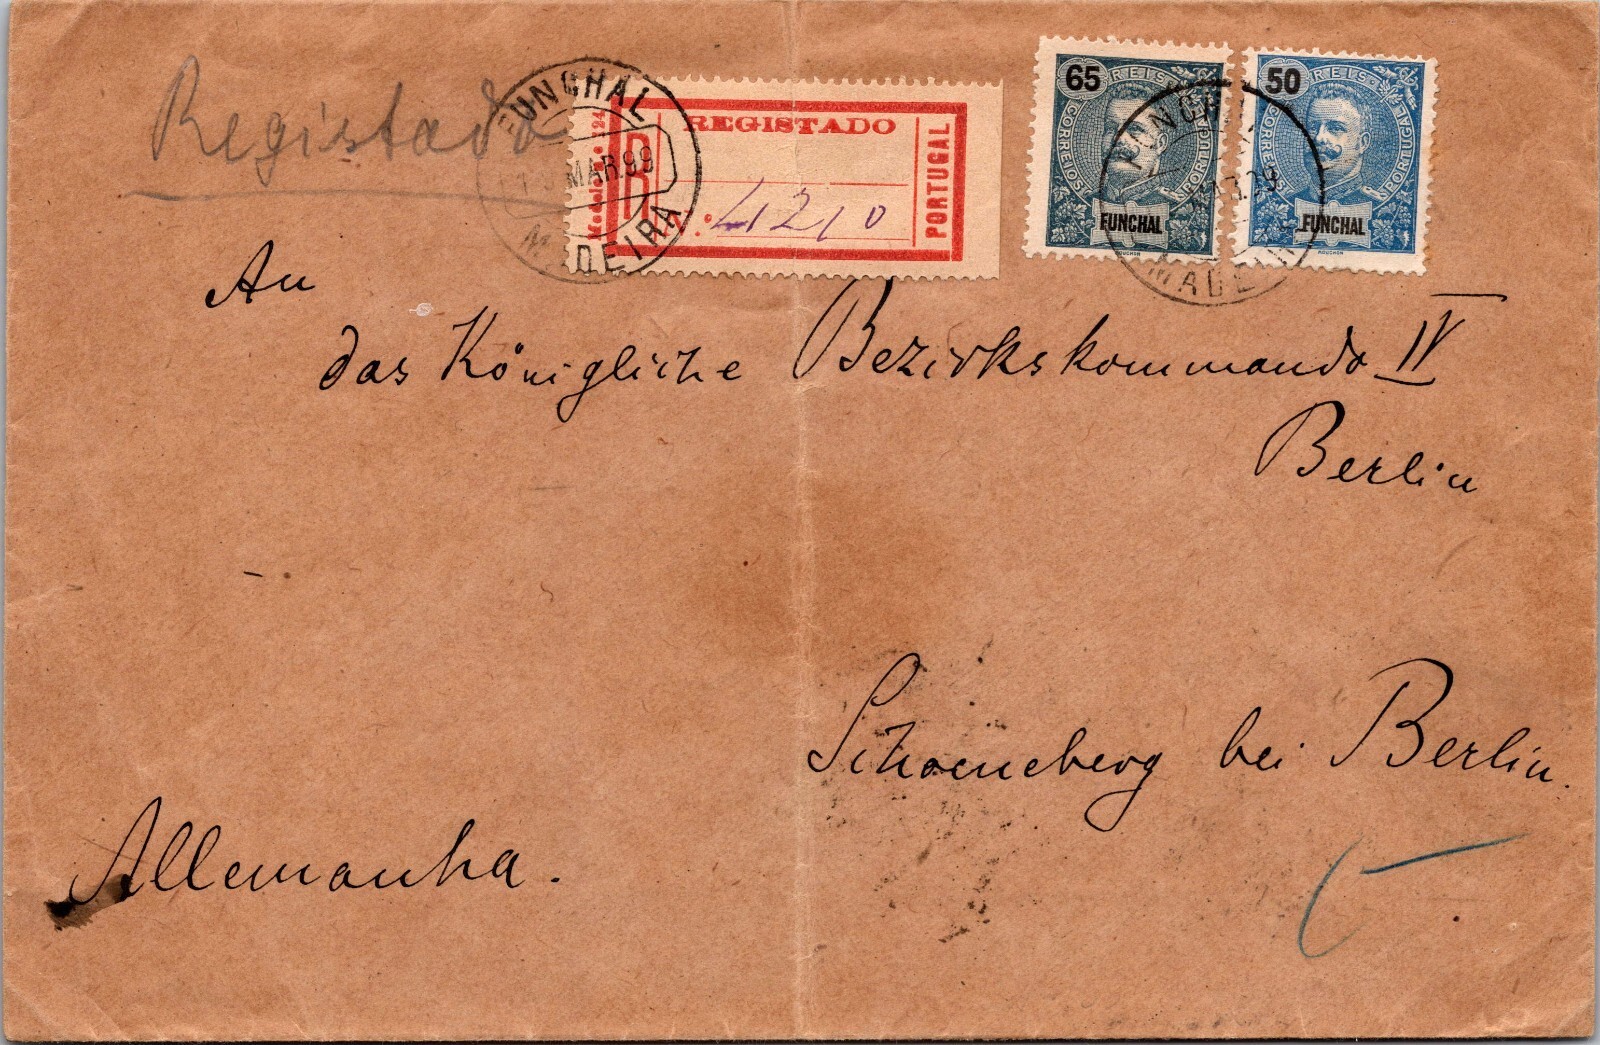 Registada
FUNCHAL
MAR.99
MADEIRA
Modelo n.º 24
R
REGISTADO
N.º 4210
PORTUGAL
65
REIS
CORREIOS
PORTUGAL
FUNCHAL
MOUCHON
50
REIS
CORREIOS
PORTUGAL
FUNCHAL
MOUCHON
FUNCHAL
MADEIRA
An
das Königliche Bezirkskommando IV
Berlin
Schoeneberg bei Berlin.
Allemanha.